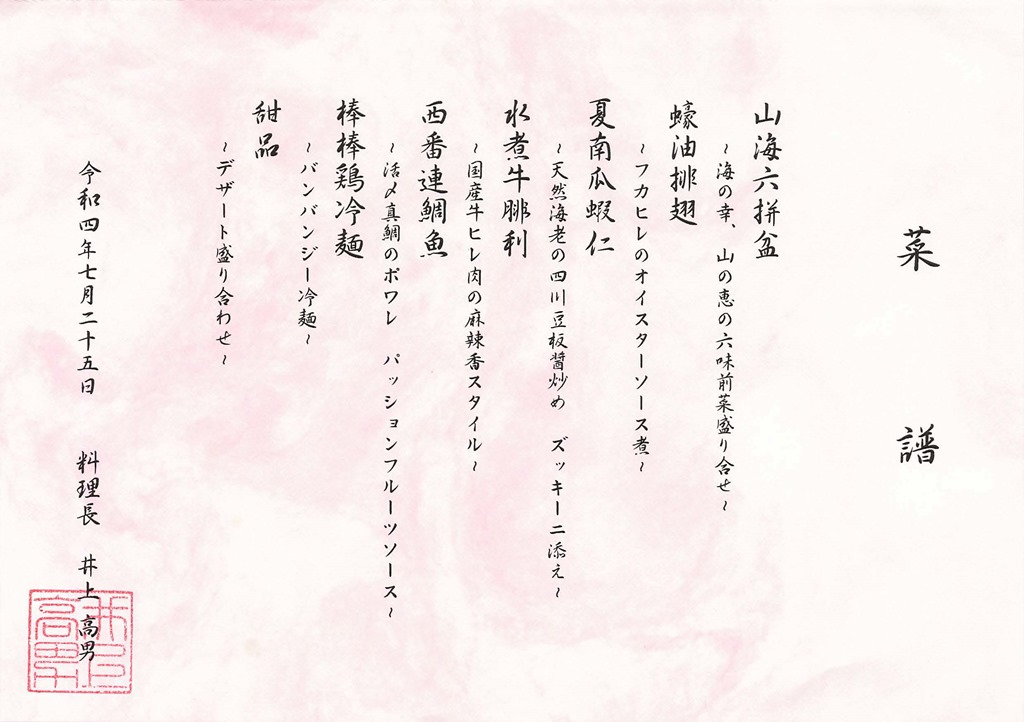 菜譜
山海六拼盆
~海の幸、山の恵の六味前菜盛り合せ~
蠔油排翅
~フカヒレのオイスターソース煮~
夏南瓜蝦仁
~天然海老の四川豆板醤炒め　ズッキーニ添え~
水煮牛腓利
~国産牛ヒレ肉の麻辣香スタイル~
西番連鯛魚
~活〆真鯛のポワレ　パッションフルーツソース~
棒棒鶏冷麺
~バンバンジー冷麺~
甜品
~デザート盛り合わせ~
令和四年七月二十五日　料理長　井上 高男
井上高男